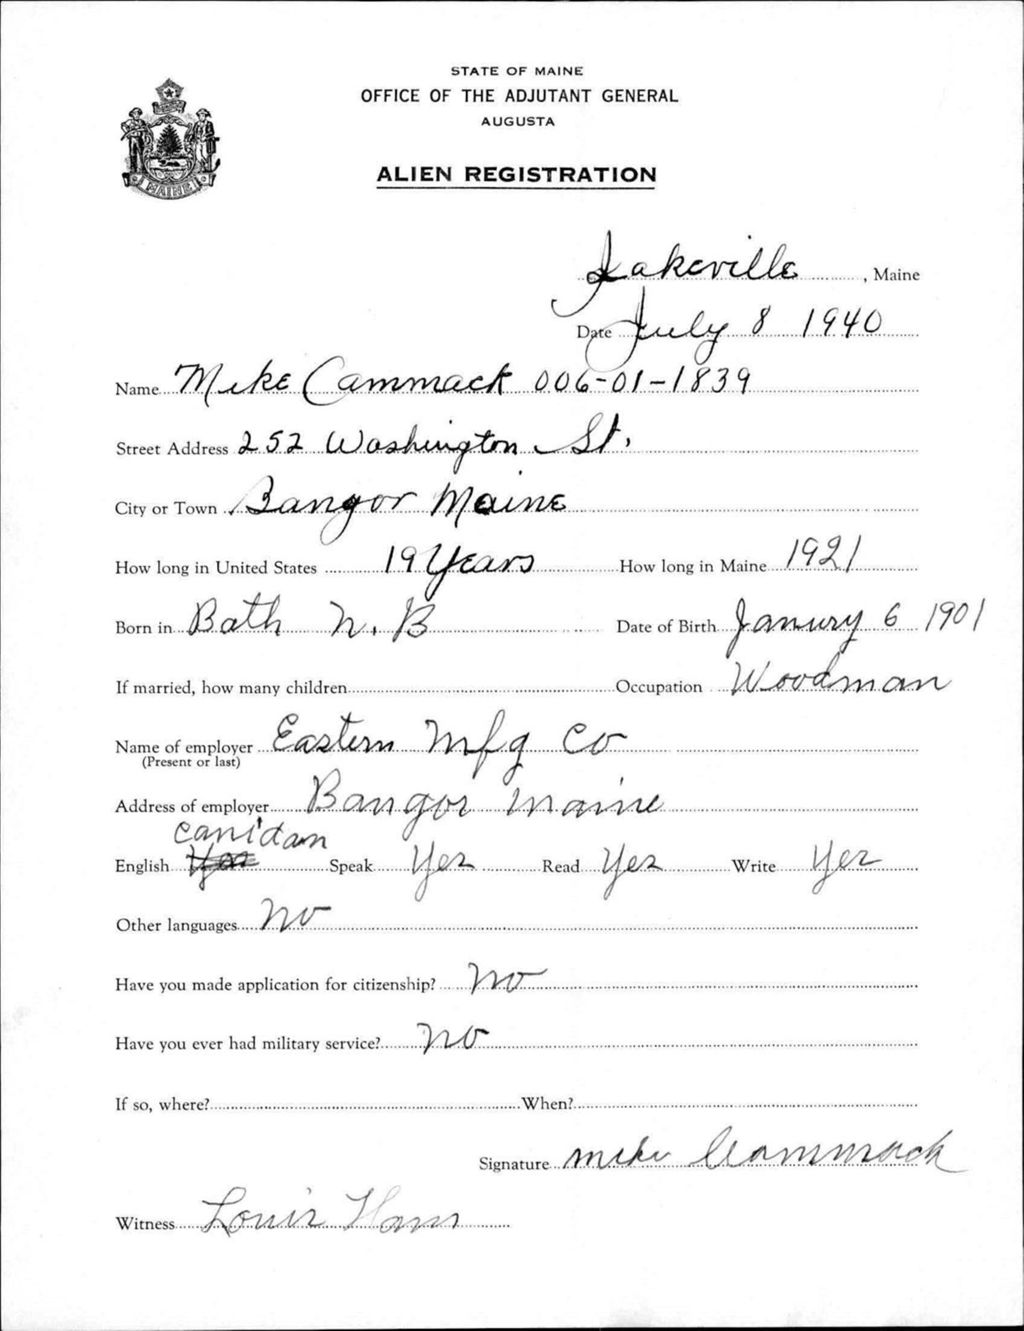 STATE OF MAINE
OFFICE OF THE ADJUTANT GENERAL
AUGUSTA
ALIEN REGISTRATION
MAINE
Lakeville, Maine
Date July 8 1940
Name Mike Cammack 006-01-1839
Street Address 252 Washington St.
City or Town Bangor Maine
How long in United States 19 Years How long in Maine 1921
Born in Bath N. B Date of Birth Januury 6 1901
If married, how many children Occupation Woodman
Name of employer Eastern Mfg Co
(Present or last)
Address of employer Bangor Maine
Canidan
English Speak Yes Read Yes Write Yes
Other languages No
Have you made application for citizenship? No
Have you ever had military service? No
If so, where? When?
Signature Mike Cammack
Witness Louis